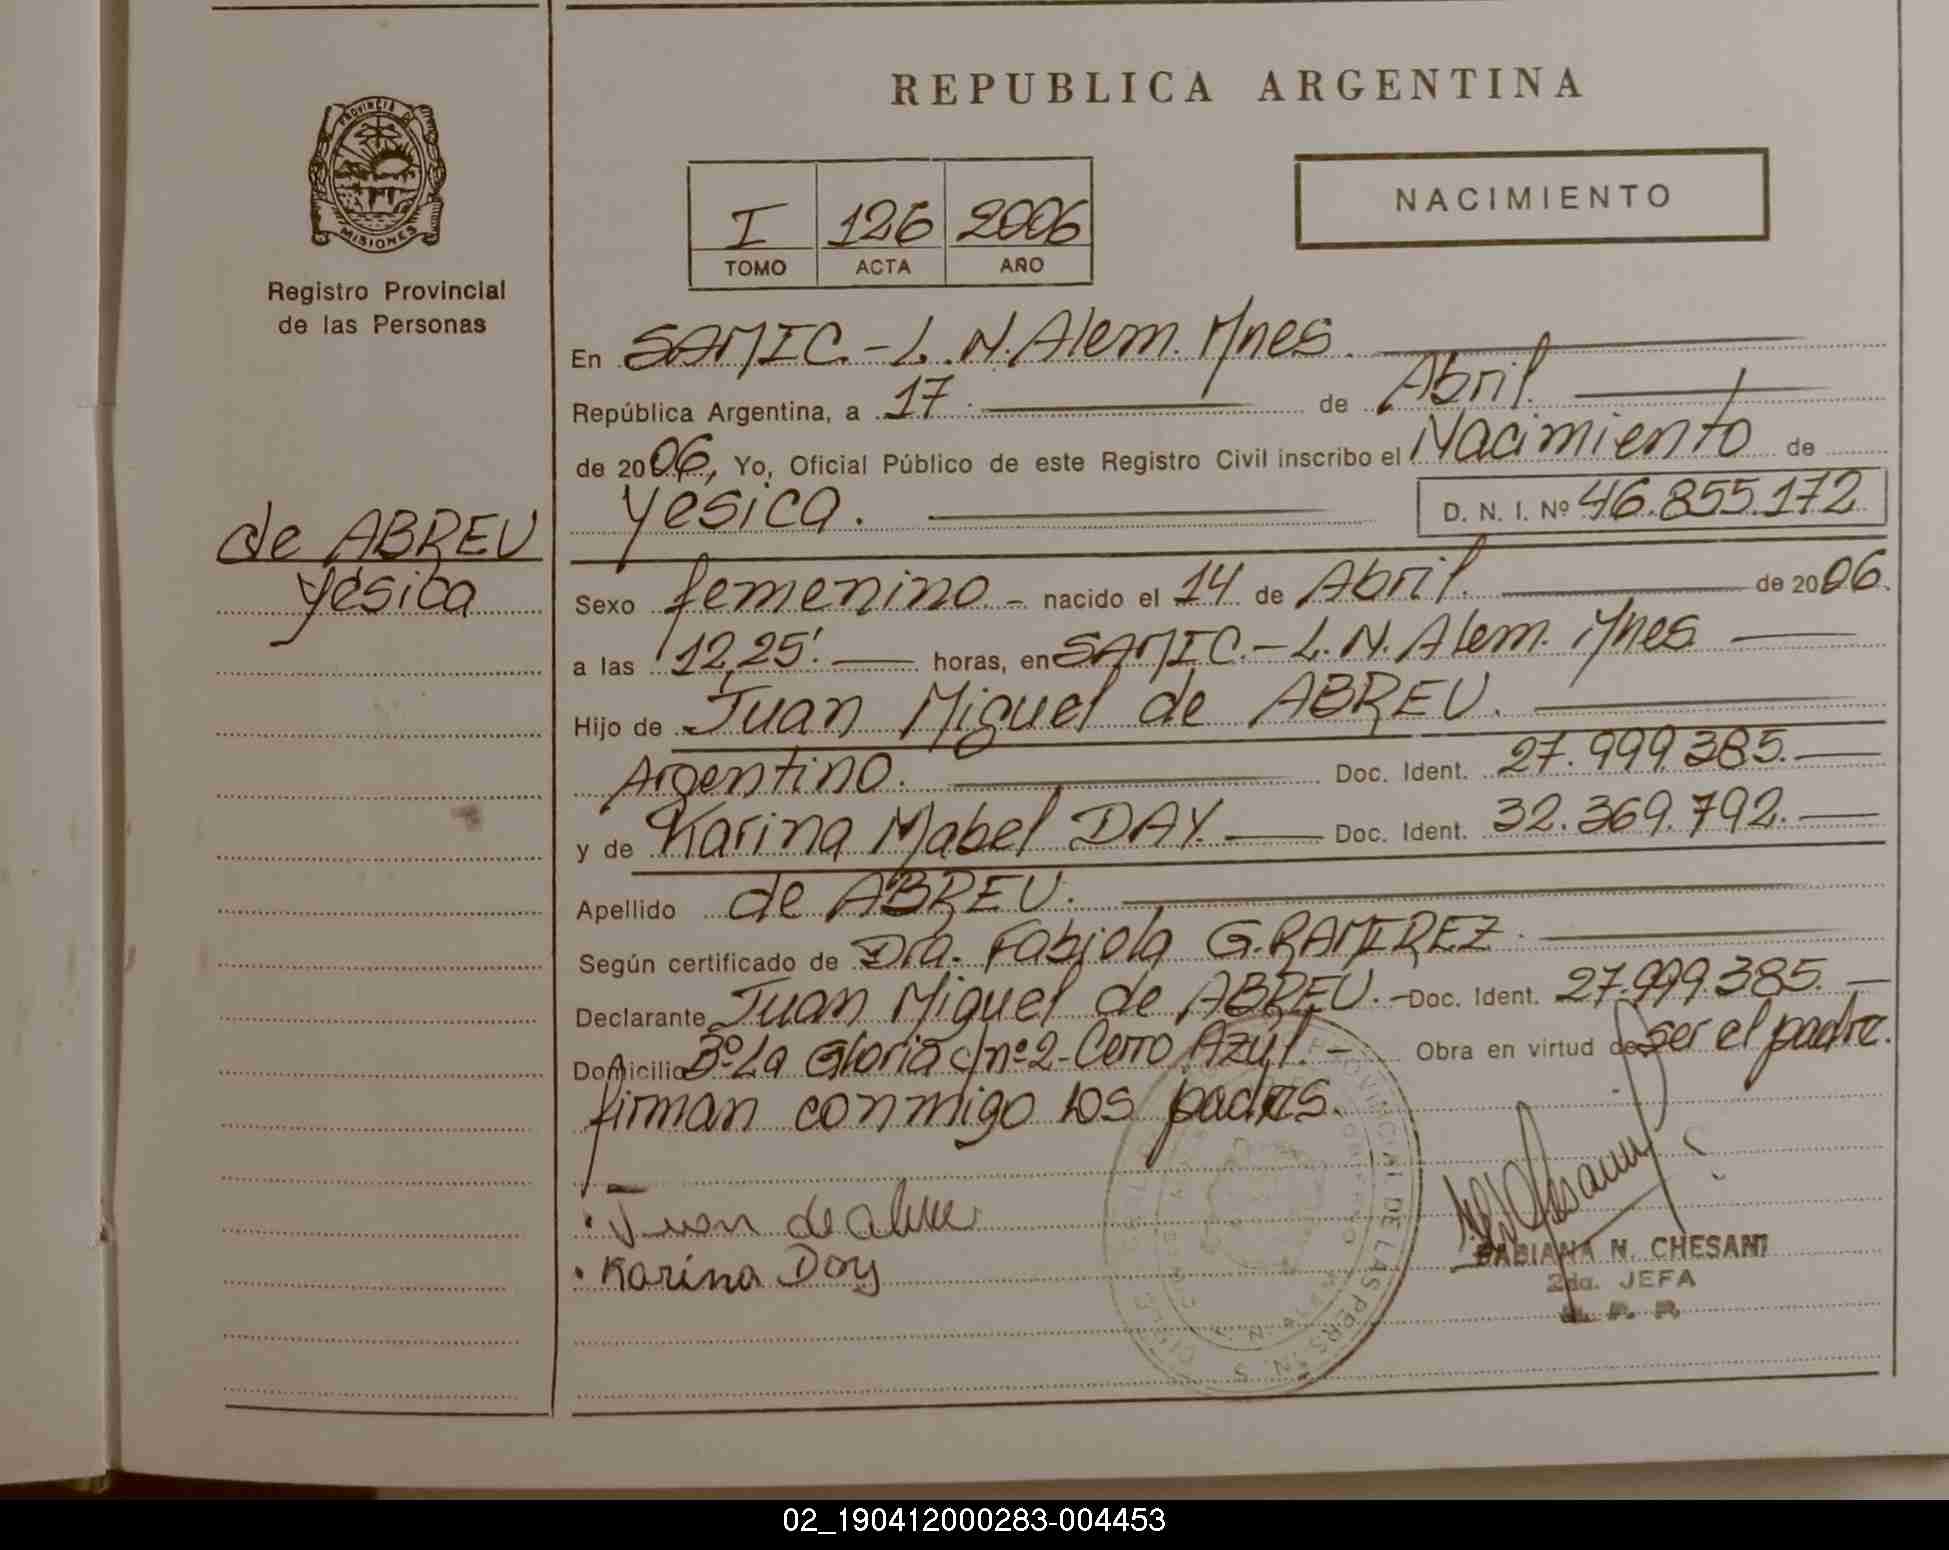 REPUBLICA ARGENTINA
PROVINCIA DE
MISIONES
Registro Provincial
de las Personas
de ABREU
Yésica
I 126 2006
TOMO ACTA AÑO
NACIMIENTO
En SAMIC.-L.N.Alem. Mnes.
República Argentina, a 17 de Abril.
de 2006, Yo, Oficial Público de este Registro Civil inscribo el Nacimiento de
Yesica. D. N. I. Nº 46.855.172
Sexo femenino - nacido el 14 de Abril. de 2006.
a las 12,25'. horas, en SAMIC.-L.N.Alem. Mnes
Hijo de Juan Miguel de ABREU.
Argentino. Doc. Ident. 27.999.385.-
y de Karina Mabel DAY. Doc. Ident. 32.369.792.-
Apellido de ABREU.
Según certificado de Dra. Fabiola G.RAMIREZ.
Declarante Juan Miguel de ABREU.- Doc. Ident. 27.999.385.-
Domicilio Bº La Gloria c/nº2-Cerro Azul.- Obra en virtud de ser el padre.
firman conmigo los padres.
Juan de abreu
Karina Day
FABIANA N. CHESANI
2da. JEFA
R. P. P.
02_190412000283-004453